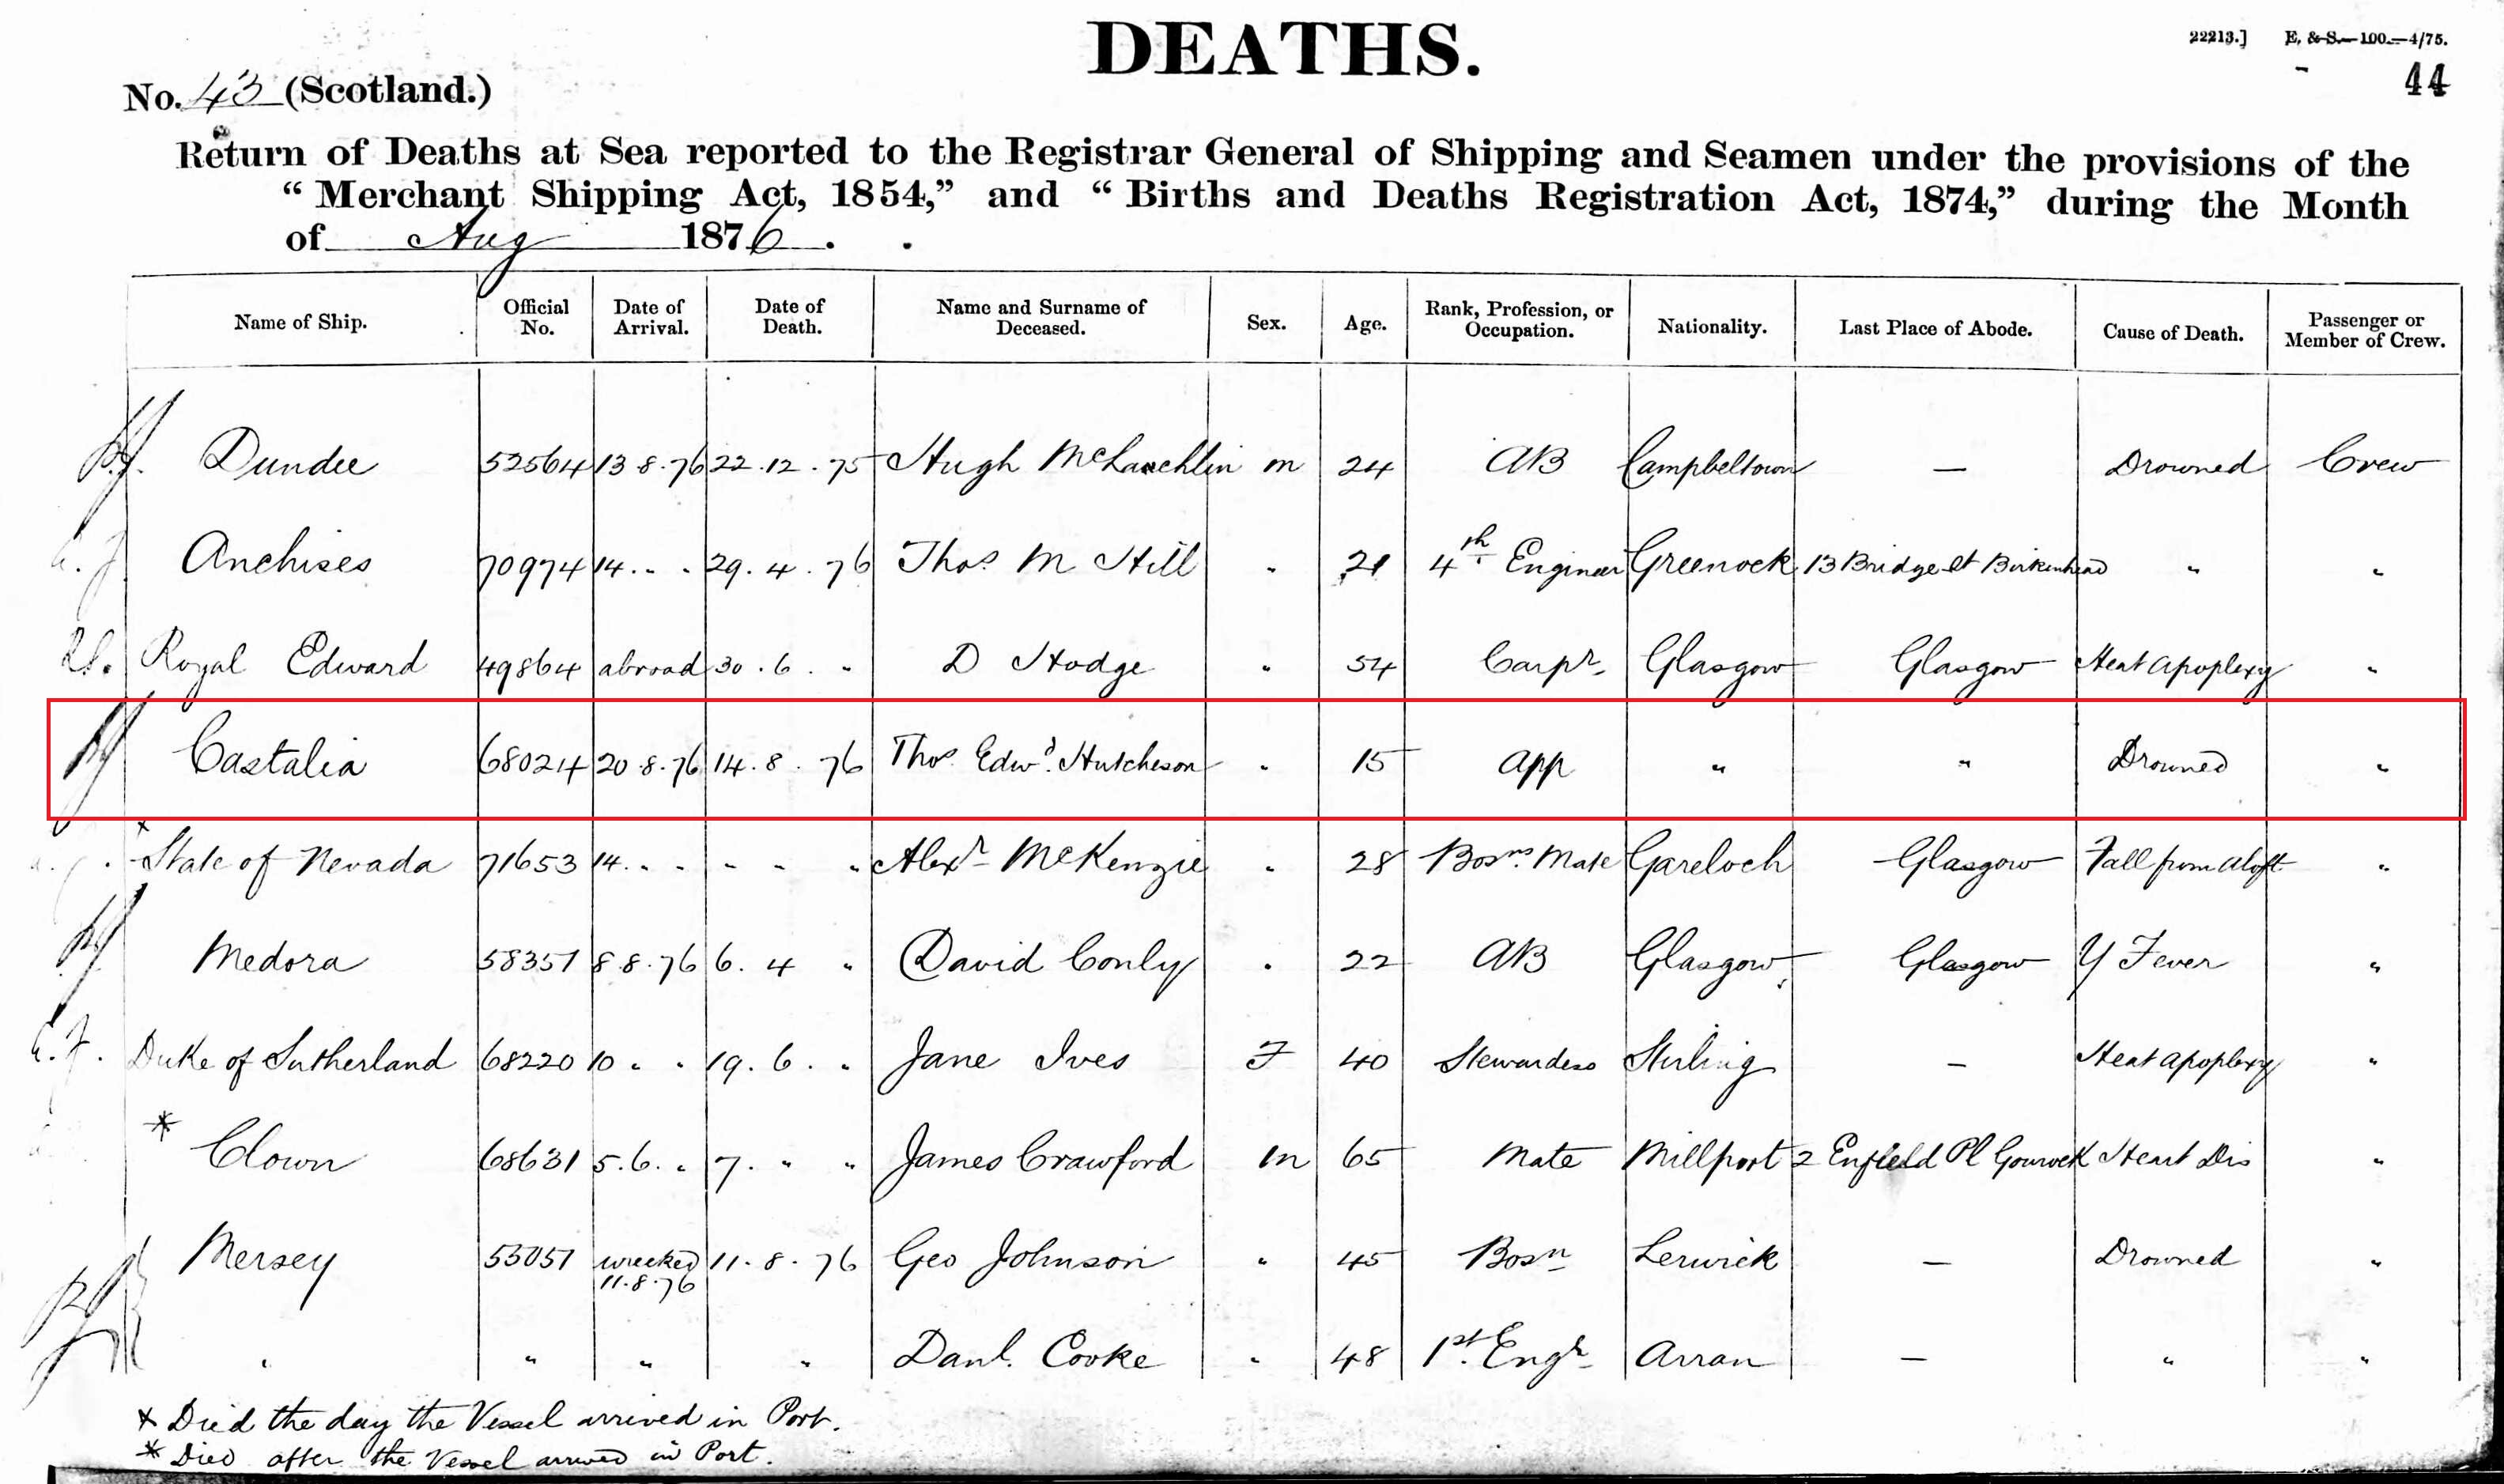 DEATHS.
22213.] E. & S.—100.—4/75.
44
No. 43 (Scotland.)
Return of Deaths at Sea reported to the Registrar General of Shipping and Seamen under the provisions of the
“Merchant Shipping Act, 1854,” and “Births and Deaths Registration Act, 1874,” during the Month
of Aug 1876.
Name of Ship. Official No. Date of Arrival. Date of Death. Name and Surname of Deceased. Sex. Age. Rank, Profession, or Occupation. Nationality. Last Place of Abode. Cause of Death. Passenger or Member of Crew.
Dundee 52564 13.8.76 22.12.75 Hugh McLauchlin m 24 AB Campbeltown — Drowned Crew
Anchises 70974 14. " " 29.4.76 Thos M Hill " 21 4th Engineer Greenock 13 Bridge St Birkenhead " "
Royal Edward 49864 abroad 30.6. " D Hodge " 54 Carpr Glasgow Glasgow Heat Apoplexy "
Castalia 68024 20.8.76 14.8.76 Thos. Edwd. Hutcheson " 15 App " " Drowned "
x State of Nevada 71653 14. " " " " " Alexr McKenzie " 28 Bosns Mate Gareloch Glasgow Fall from aloft "
Medora 58351 8.8.76 6.4 " David Conly " 22 AB Glasgow Glasgow Y Fever "
Duke of Sutherland 68220 10 " " 19.6. " Jane Ives F 40 Stewardess Stirling — Heat apoplexy "
* Clown 68631 5.6. " 7. " " James Crawford m 65 Mate Millport 2 Enfield Pl Gourock Heart Dis "
Mersey 55051 wrecked 11.8.76 11.8.76 Geo Johnson " 45 Bosn Lerwick — Drowned "
" " " " Danl. Cooke " 48 1st Engr Arran — " "
x Died the day the Vessel arrived in Port.
* Died after the Vessel arrived in Port.